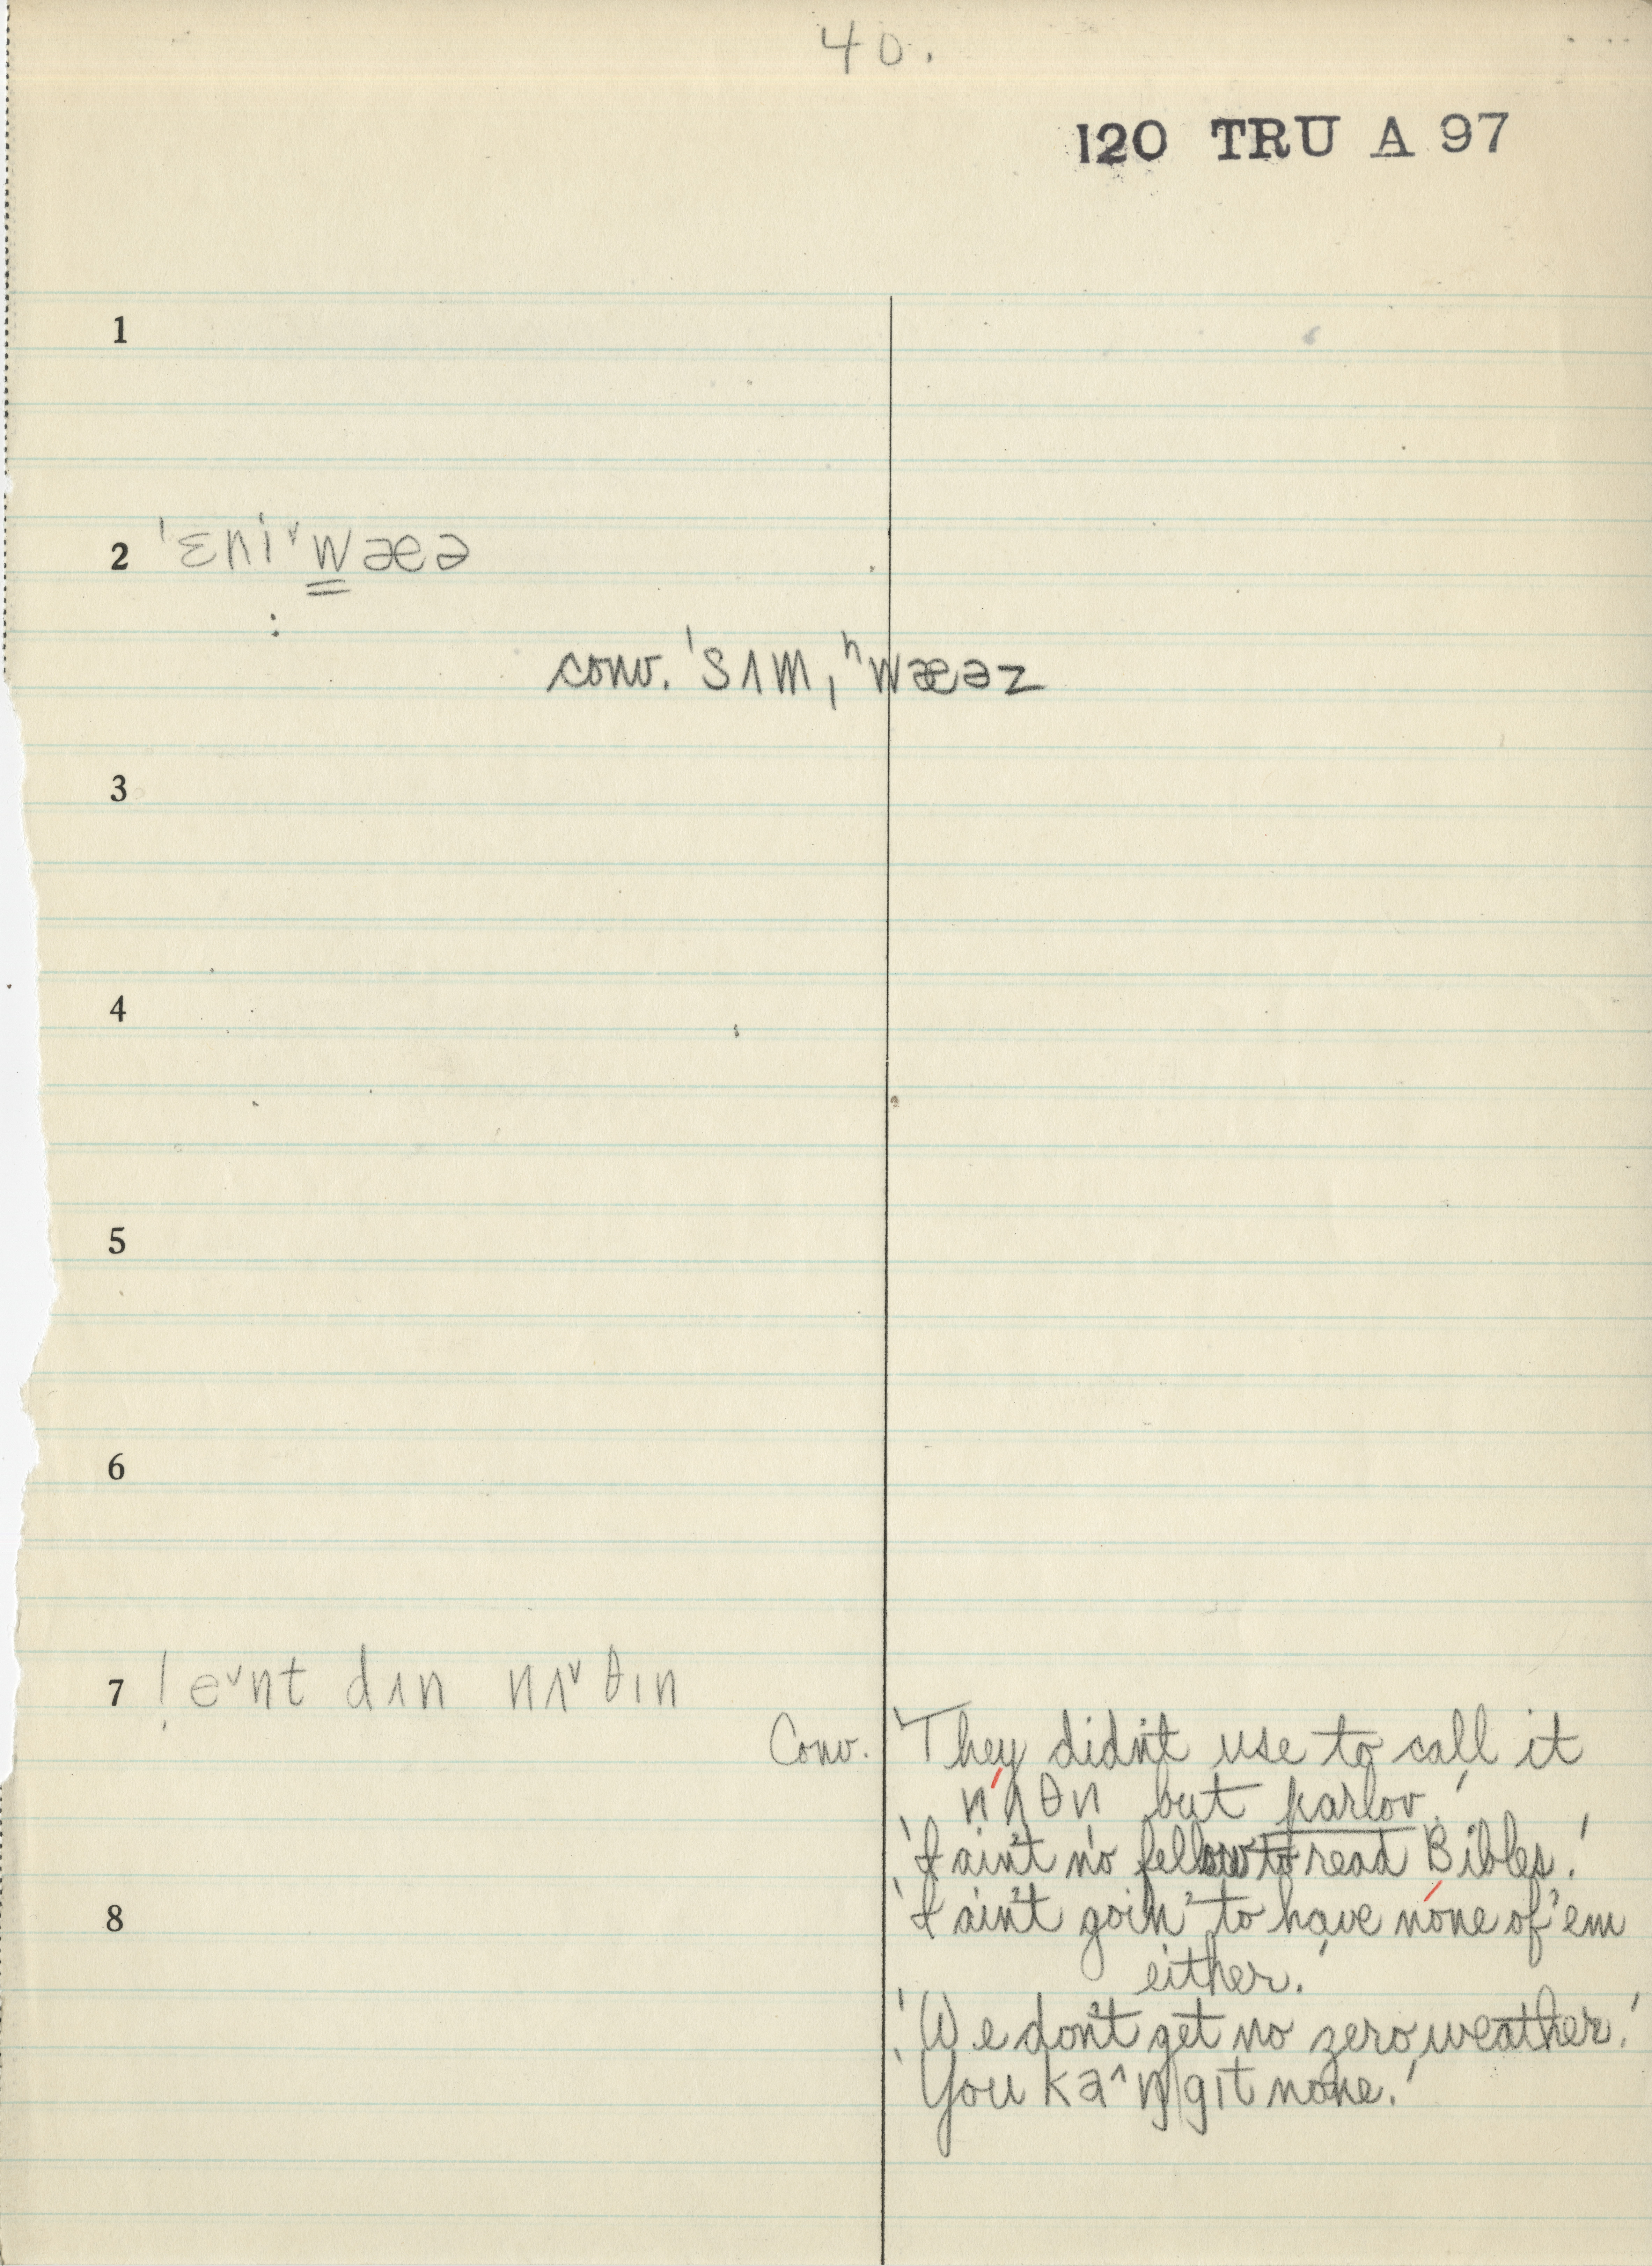 40.
120 TRU A 97
1
2 ˈɛniˇwæə
:
conv. ˈsʌmˌʰwæəz
3
4
5
6
7 ! eˇnt dʌn nʌˇθɪn
Conv. 'They didn't use to call it
nʌθn but parlov.'
'I ain't no fellow to read Bibles.'
8 'I ain't goin' to have none of 'em
either.'
'We don't get no zero weather.'
'You kaˆŋ gɪt none.'